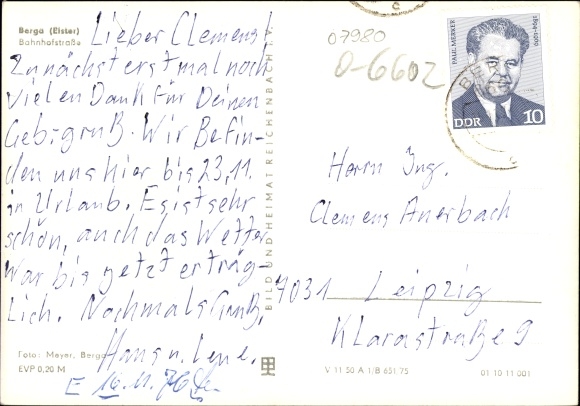 Berga (Elster)
Bahnhofstraße
Lieber Clemens!
Zunächst erstmal noch
vielen Dank für Deinen
Geb.gruß. Wir befin-
den uns hier bis 23.11.
in Urlaub. Es ist sehr
schön, auch das Wetter
war bis jetzt erträg-
lich. Nochmals Gruß,
Hans u. Lene.
Foto: Meyer, Berga
EVP 0,20 M
E 16.11.76
BILD UND HEIMAT REICHENBACH I. V.
07980
0-6602
PAUL MERKER
1894-1969
DDR 10
Herrn Ing.
Clemens Auerbach
7031 Leipzig
Klarastraße 9
V 11 50 A 1/B 651 75
01 10 11 001